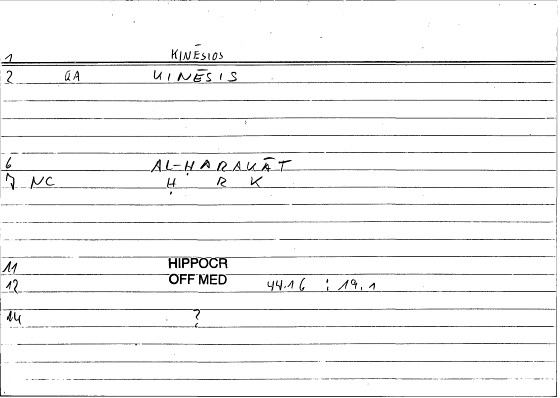 1 KINĒSIOS
2 GA KINĒSIS
6 AL-ḤARAKĀT
7 NC Ḥ R K
11 HIPPOCR
12 OFF MED 44.16 : 19.1
14 ?